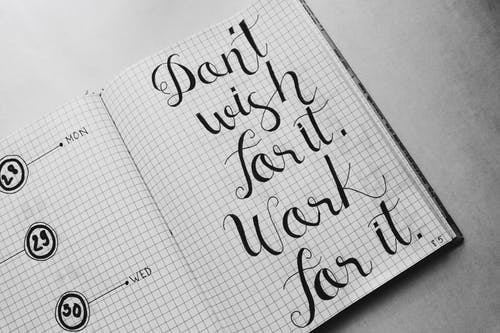 28
MON
29
30
WED
Don't
wish
for it.
Work
for it.
85